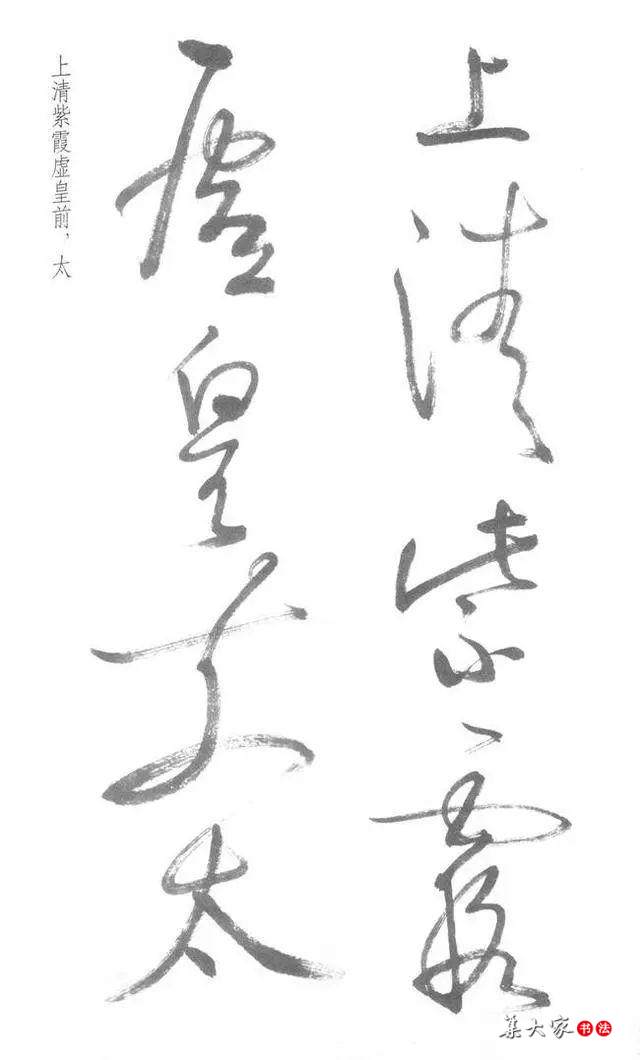 上清紫霞
虚皇前太
上清紫霞虚皇前，太
集大家书法